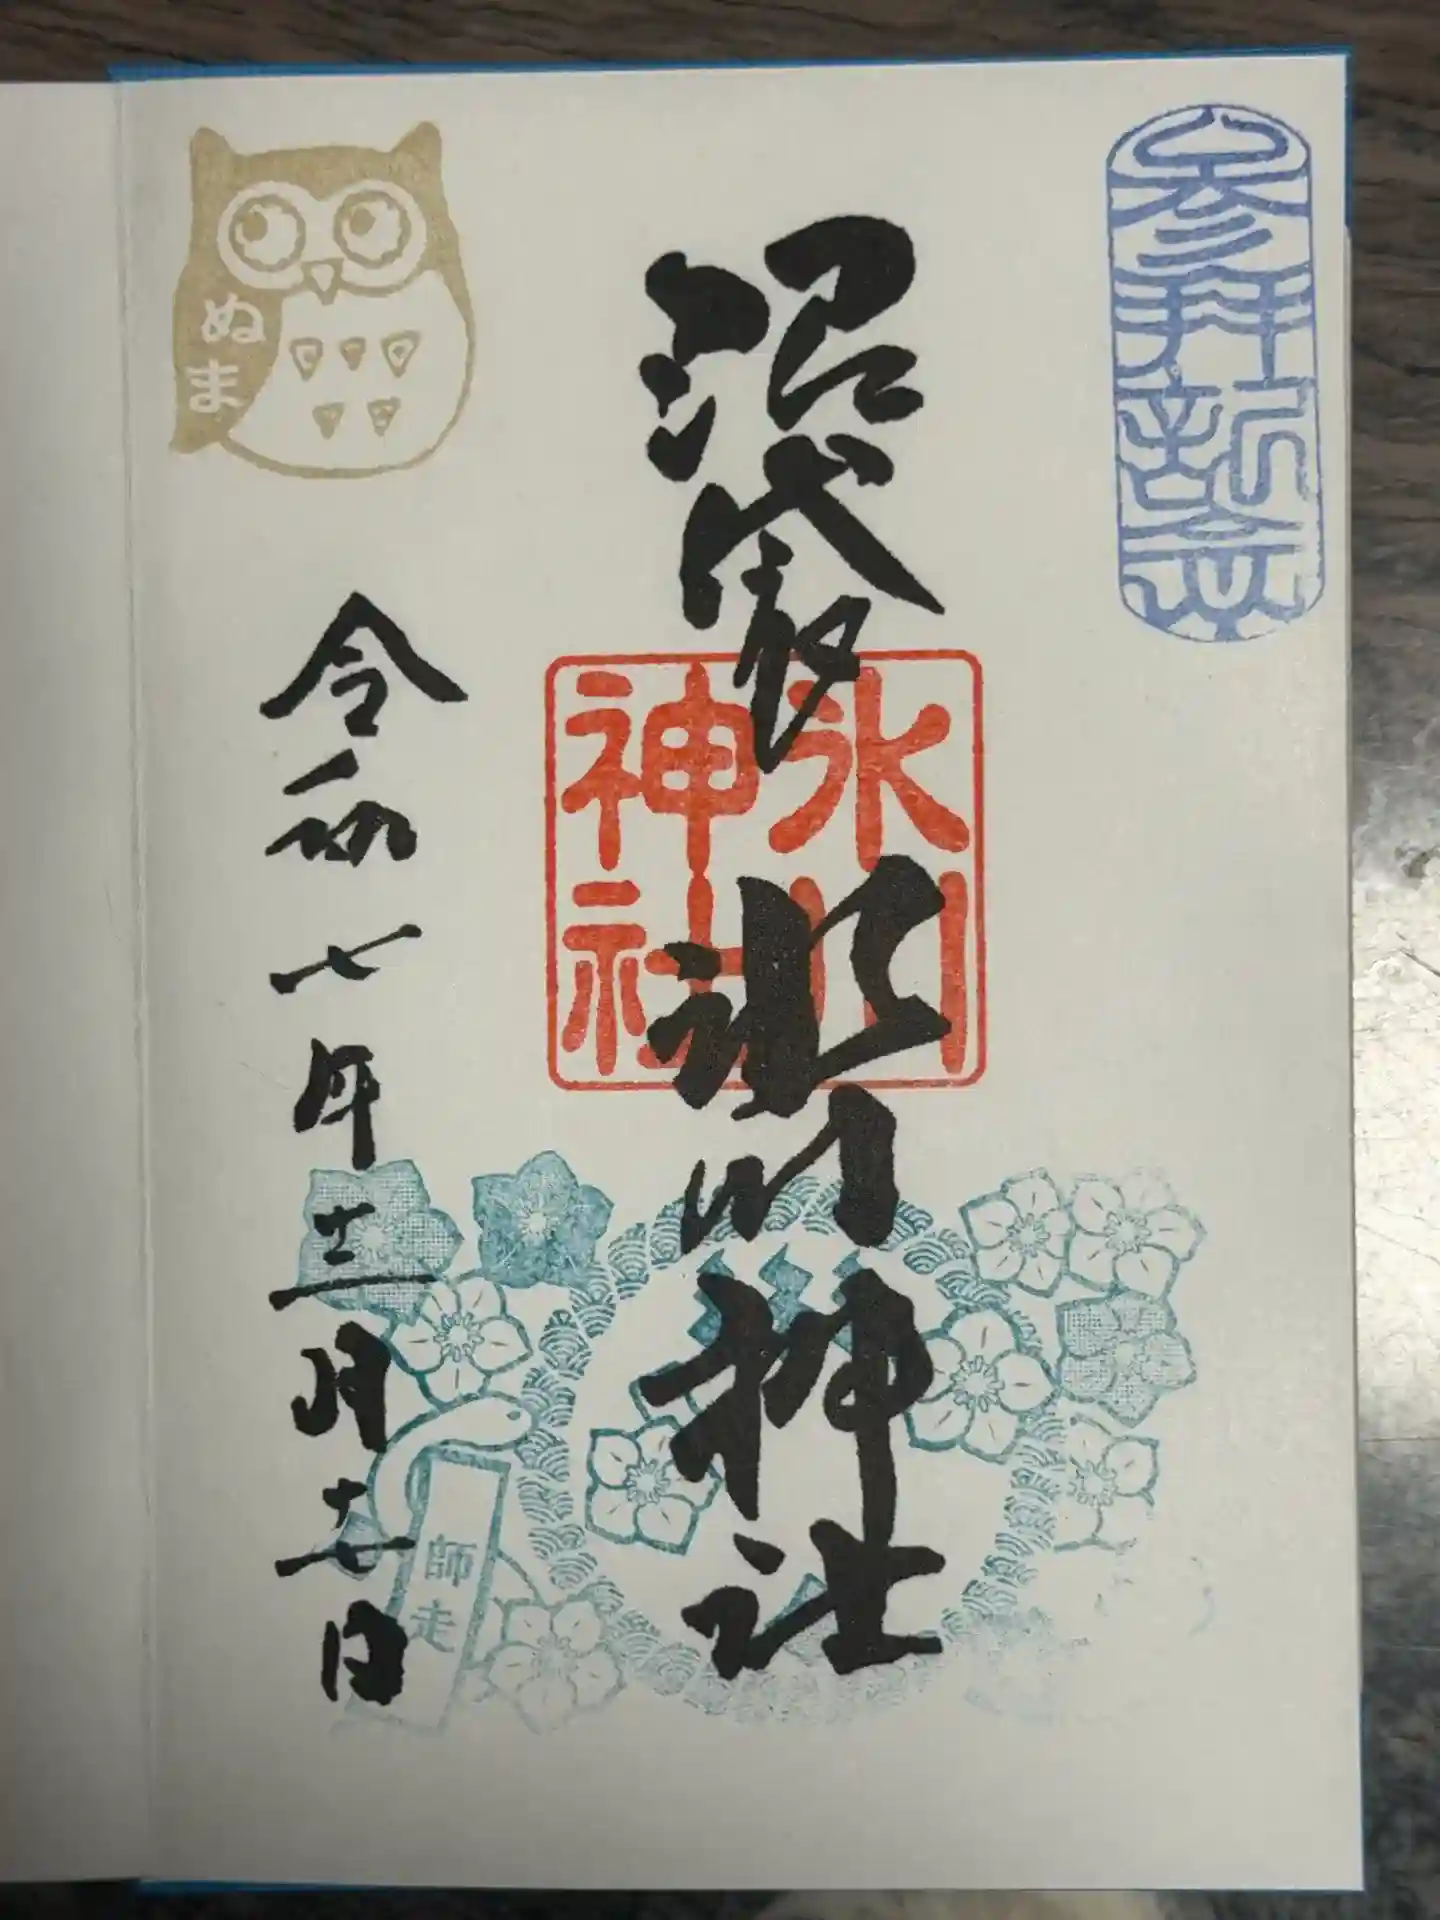 参拝記念
沼袋氷川神社
氷川
神社
ぬま
令和七年十二月十七日
師走